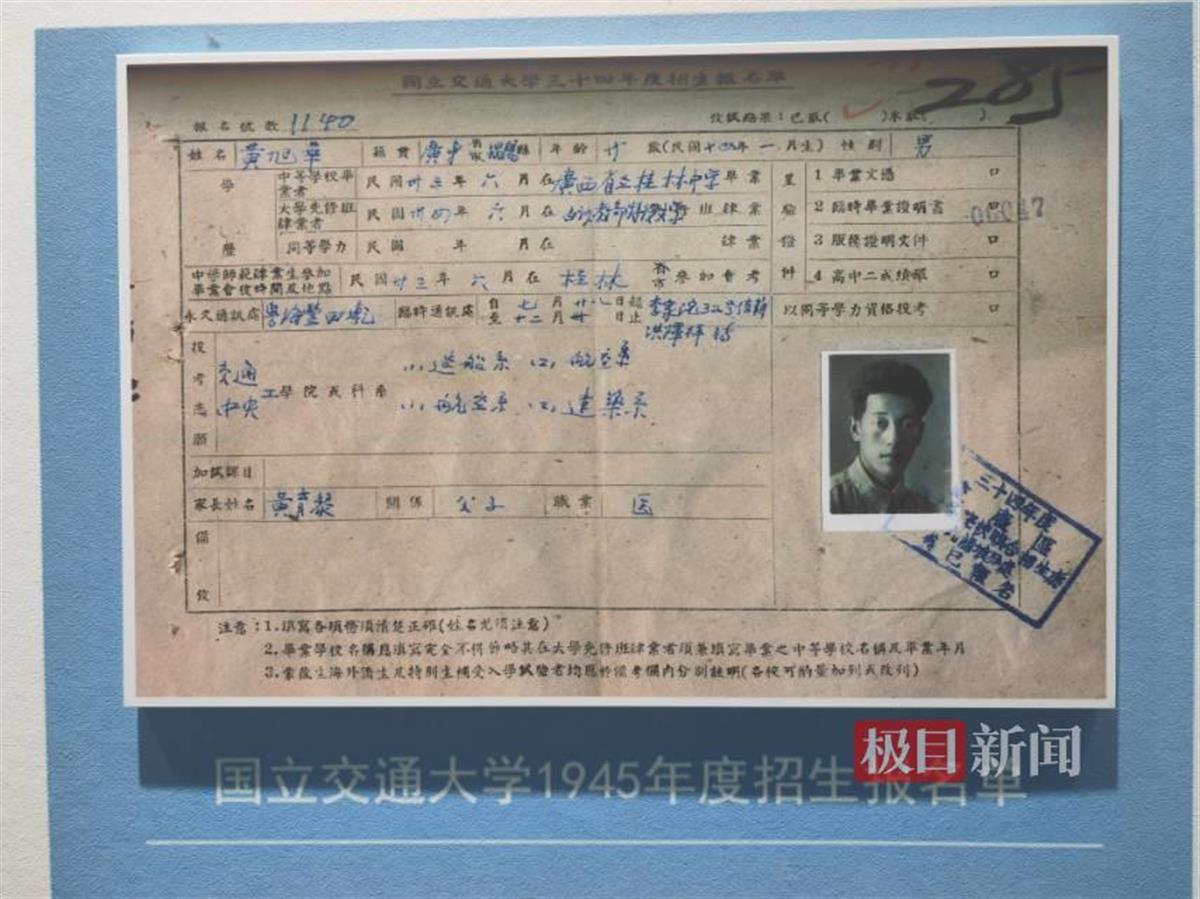 國立交通大學三十四年度招生報名單
285
報名號數 1140 攷試結果：已取( )未取( )
姓名 黃旭華 籍貫 廣東省市揭陽縣 年齡 廿歲(民國十四年一月生) 性別 男
學歷 中等學校畢業者 民國卅三年六月在廣西省立桂林中学畢業
大學先修班肄業者 民國卅四年六月在 班肄業
同等學力 民國 年 月在 肄業
呈驗證件 1 畢業文憑 口
2 臨時畢業證明書 口
3 服務證明文件 口
4 高中二成績單 口
中學師範肄業生參加畢業會攷時間及地點 民國卅三年六月在 桂林 省市參加會考
以同等學力資格投考 口
永久通訊處 粵海豐田乾 臨時通訊處 自七月廿八日起至十二月廿日止
投考志願 交通 工學院或科系 (1)造船系 (2)航空系
中央 (1)航空系 (2)建築系
加試課目
家長姓名 黃育 關係 父子 職業 医
備攷
三十四年度
已報名
注意：1.填寫各項務須清楚正確(姓名尤須注意)
2.畢業學校名稱應填寫完全不得節略其在大學先修班肄業者須兼填寫畢業之中等學校名稱及畢業年月
3.蒙藏生海外僑生及特別生補受入學試驗者均應於備考欄內分別註明(各校可酌量加列或改列)
极目新闻
国立交通大学1945年度招生报名单